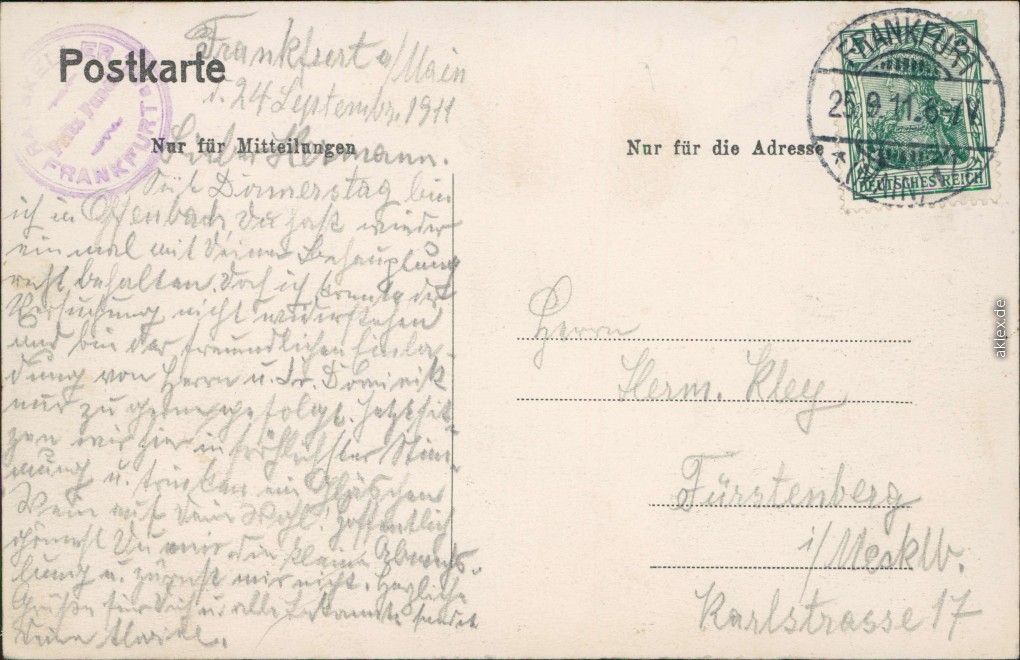 Postkarte
RATSKELLER
FRANKFURT
Frankfurt a/Main
d. 24 Septembr. 1911
Nur für Mitteilungen
Lieber Hermann.
Seit Donnerstag bin
ich in Offenbach, Du hast wieder
ein mal mit Deiner Behauptung
recht behalten. Doch ich konnte der
Versuchung nicht widerstehen
und bin der freundlichen Einla-
dung von Herrn u. Fr. Dominick
nur zu gerne gefolgt. Jetzt sit-
zen wir hier in fröhlichster Stim-
mung u. trinken ein Gläschen
Wein auf Dein Wohl! Hoffentlich
gönnst Du mir die kleine
u. zürnst mir nicht. Herzliche
Grüße für Dich u. alle Bekannte sendet
Deine
Nur für die Adresse
FRANKFURT
25.9.11.6-7N.
*(MAIN)
DEUTSCHES REICH
Herrn
Herm. Kley
Fürstenberg
i/Mecklb.
Karlstrasse 17
aklex.de